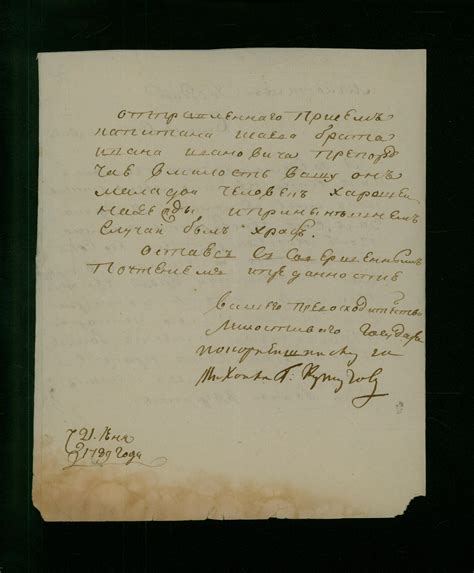 отправленнаго Приемъ
капитана шаево брата
ивана ивановича препору
чаѣ вмилость вашу онъ
маладой человек харошеи
надежды ипринынѣшнемъ
случаи былъ храбръ.
остаюсь съ совершеннымъ
Почтениемъ ипреданностию
вашего превосходительства
Милостиваго Государя
покорнѣйши слуга
Михаила Г. Кутузов
21. Июня
1789 года